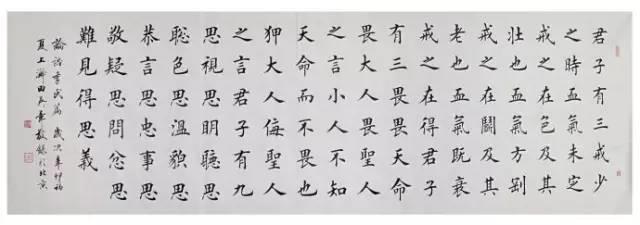 君子有三戒少
之時血氣未定
戒之在色及其
壯也血氣方剛
戒之在鬬及其
老也血氣既衰
戒之在得君子
有三畏畏天命
畏大人畏聖人
之言小人不知
天命而不畏也
狎大人侮聖人
之言君子有九
思視思明聽思
聡色思溫貌思
恭言思忠事思
敬疑思問忿思
難見得思義
論語季氏篇 歲次辛卯初
夏上澣田敬錄於北京